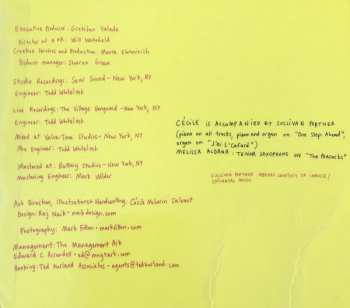 Executive Producer: Gretchen Valade
Director of A+R: Will Wakefield
Creative Services and Production: Maria Ehrenreich
Product manager: Sharon Green
Studio Recordings: Sear Sound - New York, NY
Engineer: Todd Whitelock
Live Recordings: The Village Vanguard - New York, NY
Engineer: Todd Whitelock
Mixed at Valve/Tone Studios - New York, NY
Mix Engineer: Todd Whitelock
Mastered at: Battery Studios - New York, NY
Mastering Engineer: Mark Wilder
Art Direction, Illustrations + Handwriting: Cécile McLorin Salvant
Design: Raj Naik -
Photography: Mark Fitton - markfitton.com
Management: The Management Ark
Edward C. Arrendell - ed@mngtark.com
Booking: Ted Kurland Associates - agents@tedkurland.com
CÉCILE IS ACCOMPANIED BY SULLIVAN FORTNER
(piano on all tracks, piano and organ on "One Step Ahead",
organ on "J'ai L'Cafard")
MELISSA ALDANA: TENOR SAXOPHONE on "The Peacocks"
SULLIVAN FORTNER APPEARS COURTESY OF IMPULSE/